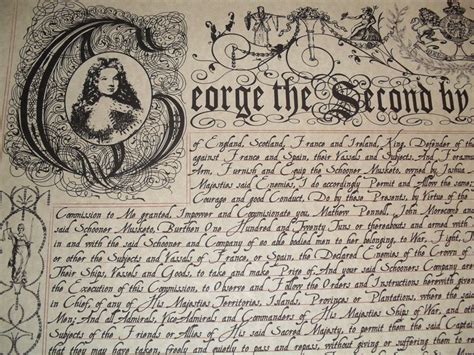 George the Second by
of England, Scotland, France and Ireland, King, Defender of the
against France and Spain, their Vassals and Subjects. And I earnestly
Arm, Furnish and Equip the Schooner Musketo, owned by Joshua
Majesties said Enemies, I do accordingly Permit and Allow the same,
Courage and good Conduct, Do by these Presents, by Virtue of the
Commission to Me granted, Impower and Commissionate you, Matthew Pennell, John Morecomb and
said Schooner Musketo, Burthen One Hundred and Twenty Tuns or thereabouts and armed with
in and with the said Schooner and Company of able bodied men to her belonging, to War, Fight,
or other the Subjects and Vassals of France, or Spain, the Declared Enemies of the Crown of
Their Ships, Vessels and Goods, to take and make Prize of. And your said Schooners Company
the Execution of this Commission, to Observe and Follow the Orders and Instructions herewith given
in Chief, of any of His Majesties Territories, Islands, Provinces or Plantations, where the said
Men; And all Admirals, Vice-Admirals and Commanders of His Majesties Ships of War, and others
Subjects of the Friends or Allies of His said Sacred Majesty, to permit them the said Captain
may have been taken, freely and quietly to pass and repass, without giving or